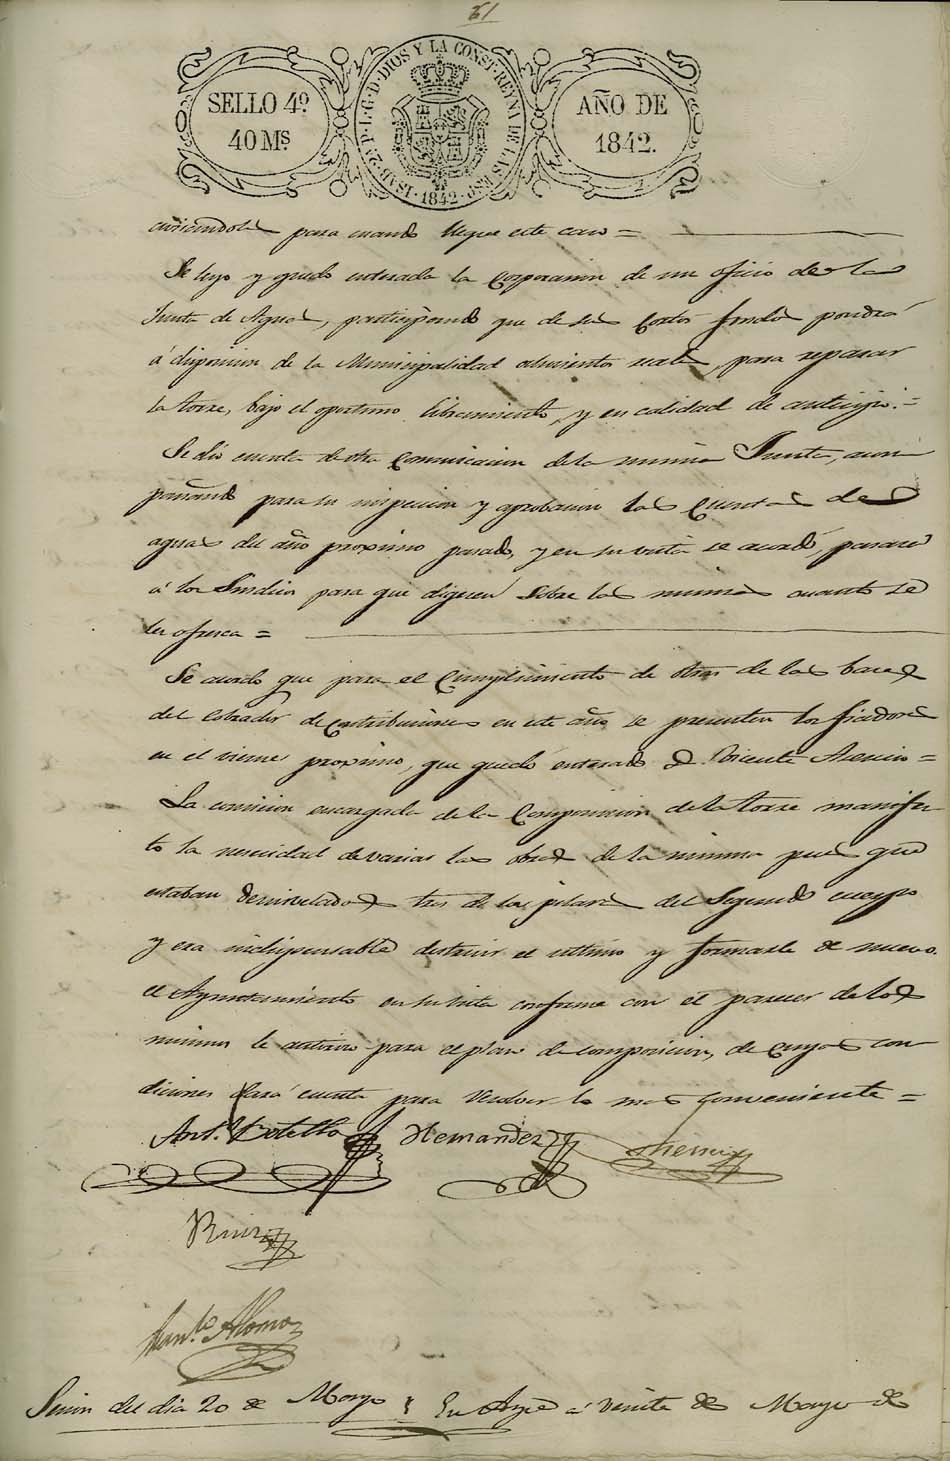 61
SELLO 4º
40 Ms
ISAB. 2ª P. L. G. D. DIOS Y LA CONST. REYNA DE LAS ESP. 1842
AÑO DE
1842.
para cuando llegue este caso =
Se leyo y quedó enterada la Corporacion de un oficio de la
Junta de Aguas, participando que de sus cortos fondos pondrá
á disposicion de la Municipalidad ochocientos reales, para reparar
la torre, bajo el oportuno libramiento, y en calidad de anticipo. =
Se dió cuenta de otra Comunicacion de la misma Junta, acom
pañando para su inspeccion y aprobacion las Cuentas de
aguas del año proximo pasado, y en su vista se acordó, pasarse
á los Sindicos para que digesen sobre las mismas cuanto se
les ofresca =
Se acordo que para el Cumplimiento de otras de las bases
del Cobrador de Contribuciones en este año se presenten los fiadores
en el viernes proximo, que quedó enterado D. Vicente Asencio =
La comision encargada de la Composicion de la torre manifes
tó la necesidad de variar las obras de la misma pues que
estaban desnivelados tres de los pilares del Segundo cuerpo
y era indispensable destruir el ultimo y formarle de nuevo.
el Ayuntamiento en su vista conforme con el parecer de los
mismos le autorizo para el plan de composicion, de cuyas con
diciones dará cuenta para resolver lo mas conveniente =
Ant.º Botella Hernandez
Ruiz
Alonso
Sesion del dia 20 de Mayo En à veinte de Mayo de